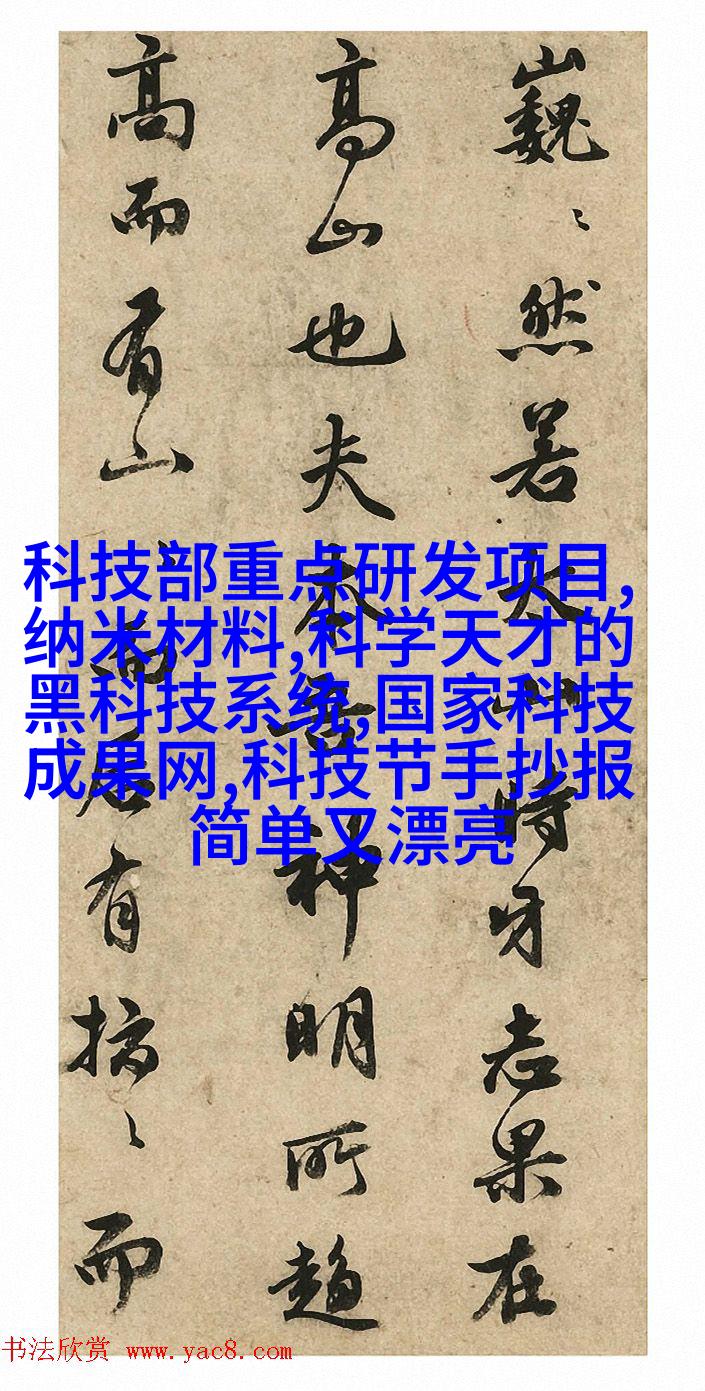 巍〻然若太山時牙志果在
高山也夫神明所趨
高而有山〻而居有〻而
科技部重点研发项目,
纳米材料,科学天才的
黑科技系统,国家科技
成果网,科技节手抄报
简单又漂亮
书法欣赏 www.yac8.com